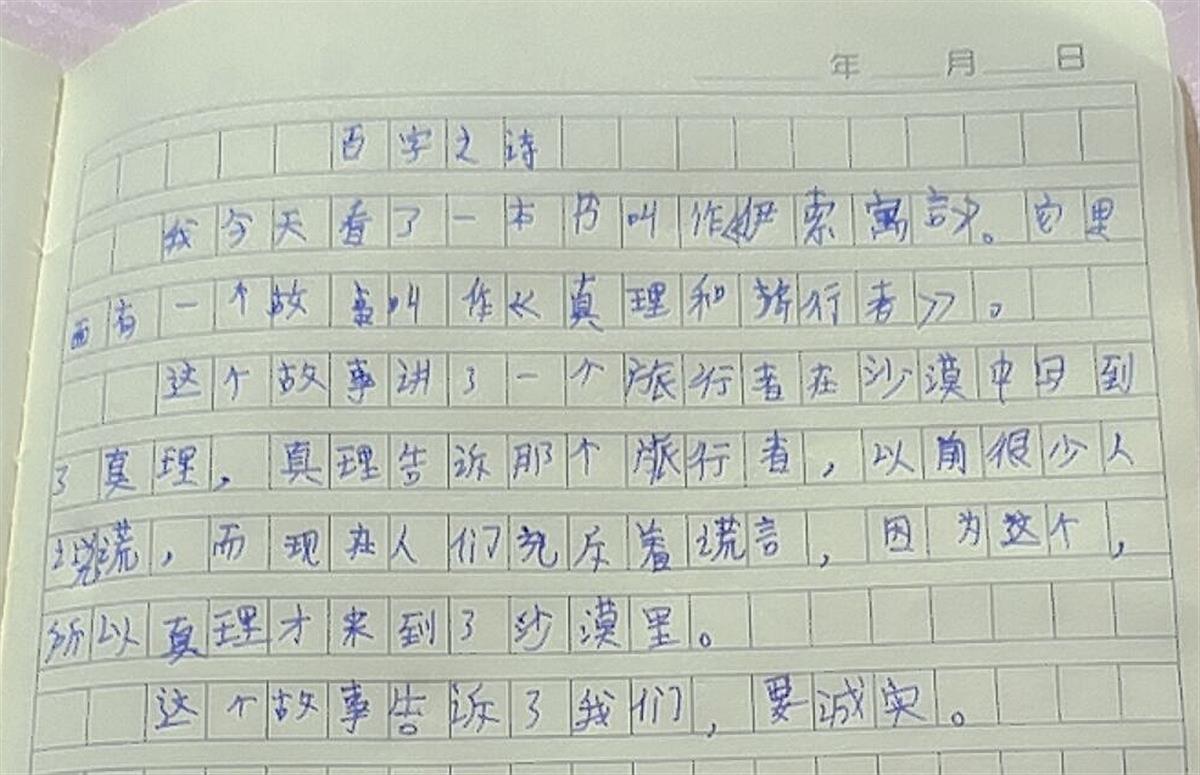 年 月 日
百字之诗
我今天看了一本书叫作《伊索寓言》。它里
面有一个故事叫作《真理和旅行者》。
这个故事讲了一个旅行者在沙漠中日到
了真理,真理告诉那个旅行者,以前很少人
说谎,而现在人们充斥着谎言,因为这个,
所以真理才来到了沙漠里。
这个故事告诉了我们,要诚实。